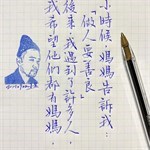 小時候，媽媽告訴我：
「做人要善良」
後來，我遇到了許多人，
我希望他們都有媽媽，